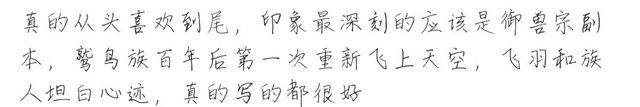 真的从头喜欢到尾，印象最深刻的应该是御兽宗副
本，鹫鸟族百年后第一次重新飞上天空，飞羽和族
人坦白心迹，真的写的都很好